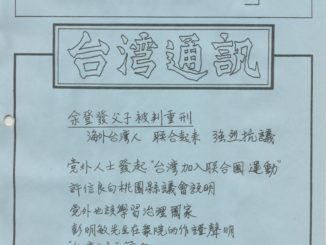 台灣通訊
余登發父子被判重刑
海外台灣人 联合起來 强烈抗議
党外人士發起“台灣加入联合國運動”
許信良向桃園縣議會說明
党外也該學習治理國家
彭明敏先生在衆院的作證聲明